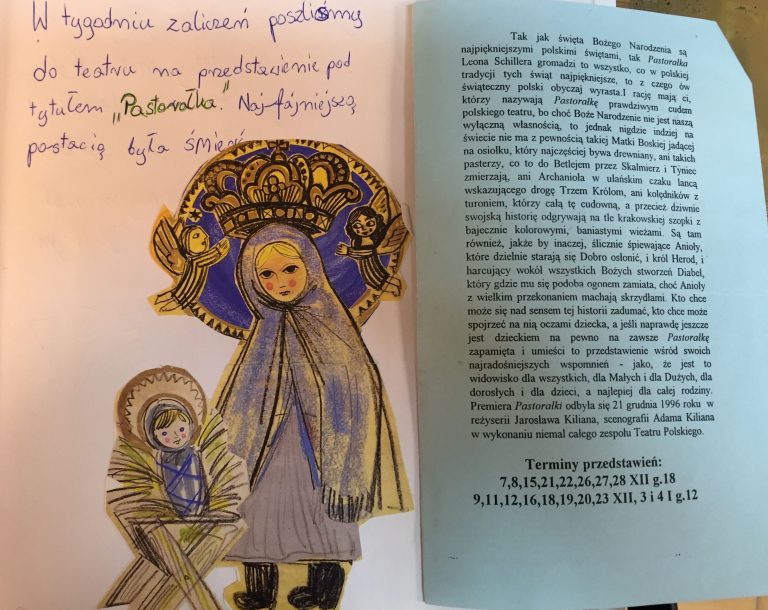 W tygodniu zaliczeń poszliśmy
do teatru na przedstawienie pod
tytułem „Pastorałka". Najfajniejszą
postacią była śmierć
Tak jak święta Bożego Narodzenia są
najpiękniejszymi polskimi świętami, tak Pastorałka
Leona Schillera gromadzi to wszystko, co w polskiej
tradycji tych świąt najpiękniejsze, to z czego ów
świąteczny polski obyczaj wyrasta.I rację mają ci,
którzy nazywają Pastorałkę prawdziwym cudem
polskiego teatru, bo choć Boże Narodzenie nie jest naszą
wyłączną własnością, to jednak nigdzie indziej na
świecie nie ma z pewnością takiej Matki Boskiej jadącej
na osiołku, który najczęściej bywa drewniany, ani takich
pasterzy, co to do Betlejem przez Skalmierz i Tyniec
zmierzają, ani Archanioła w ułańskim czaku lancą
wskazującego drogę Trzem Królom, ani kolędników z
turoniem, którzy całą tę cudowną, a przecież dziwnie
swojską historię odgrywają na tle krakowskiej szopki z
bajecznie kolorowymi, baniastymi wieżami. Są tam
również, jakże by inaczej, ślicznie śpiewające Anioły,
które dzielnie starają się Dobro osłonić, i król Herod, i
harcujący wokół wszystkich Bożych stworzeń Diabeł,
który gdzie mu się podoba ogonem zamiata, choć Anioły
z wielkim przekonaniem machają skrzydłami. Kto chce
może się nad sensem tej historii zadumać, kto chce może
spojrzeć na nią oczami dziecka, a jeśli naprawdę jeszcze
jest dzieckiem na pewno na zawsze Pastorałkę
zapamięta i umieści to przedstawienie wśród swoich
najradośniejszych wspomnień - jako, że jest to
widowisko dla wszystkich, dla Małych i dla Dużych, dla
dorosłych i dla dzieci, a najlepiej dla całej rodziny.
Premiera Pastorałki odbyła się 21 grudnia 1996 roku w
reżyserii Jarosława Kiliana, scenografii Adama Kiliana
w wykonaniu niemal całego zespołu Teatru Polskiego.
Terminy przedstawień:
7,8,15,21,22,26,27,28 XII g.18
9,11,12,16,18,19,20,23 XII, 3 i 4 I g.12